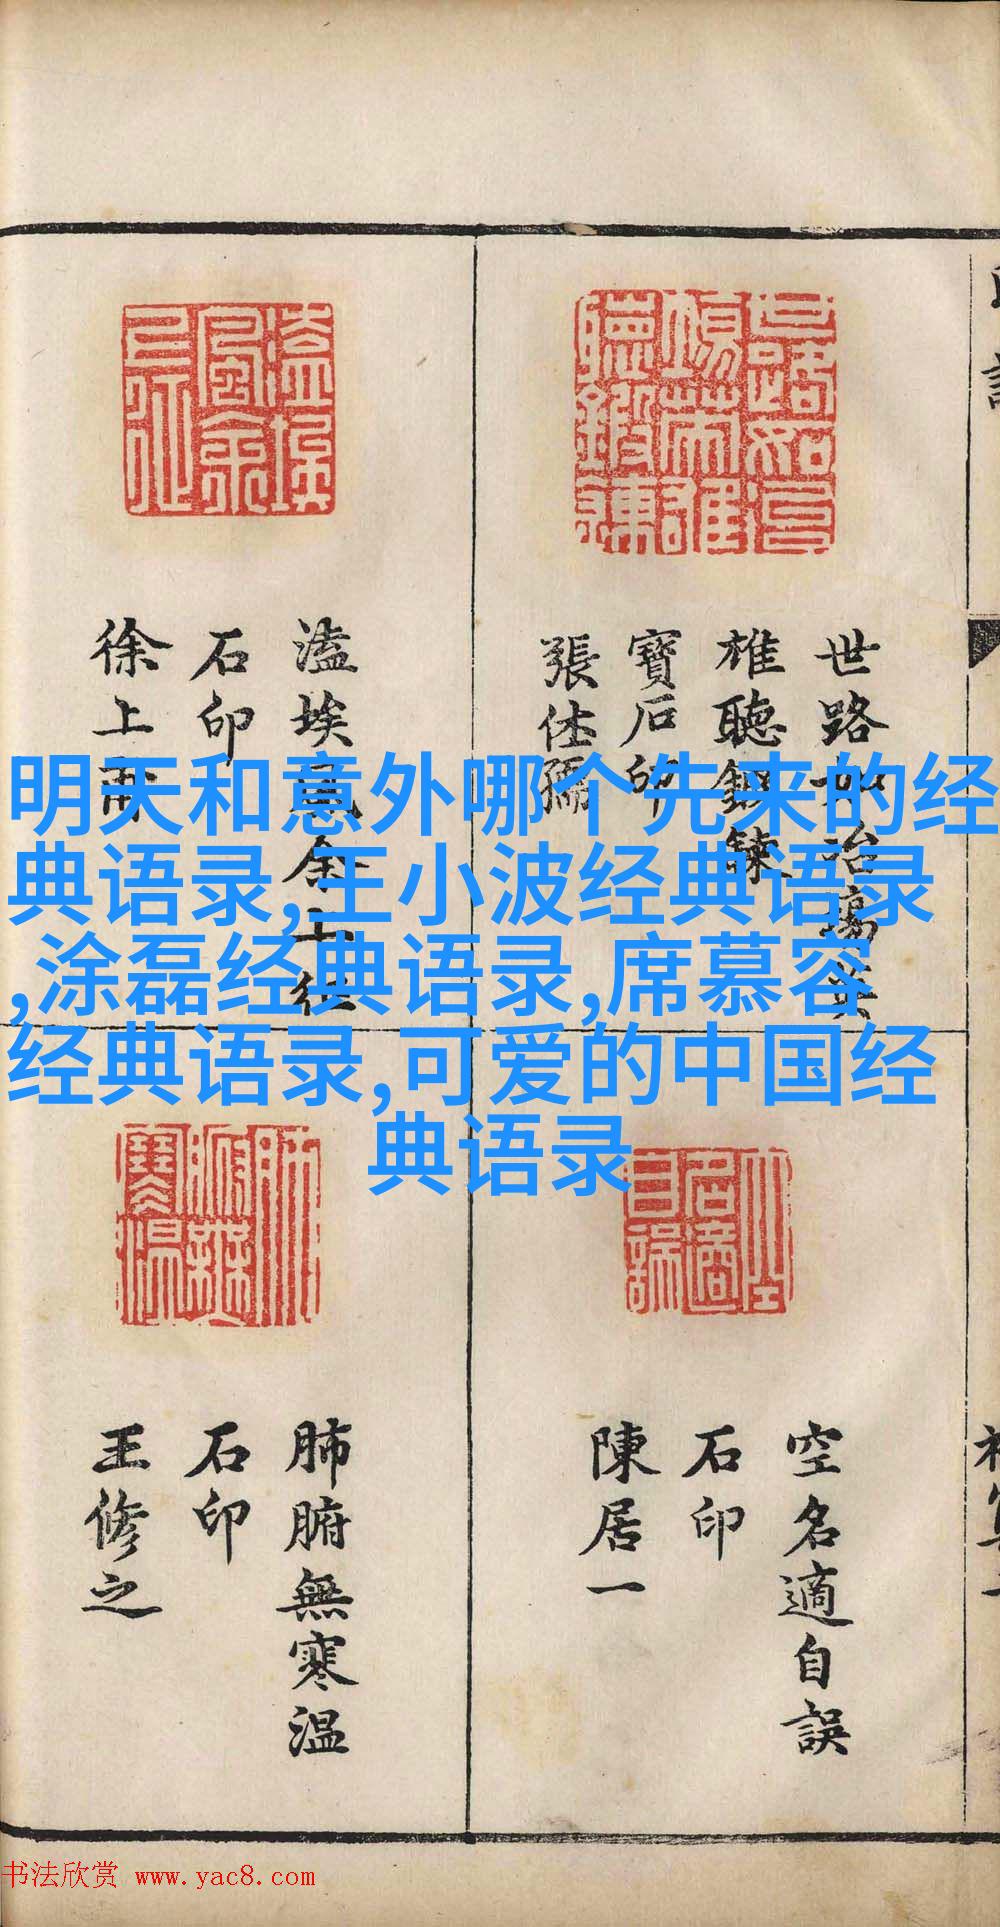 明天和意外哪个先来的经
典语录,王小波经典语录
,涂磊经典语录,席慕容
经典语录,可爱的中国经
典语录
世路如冶
雄聽鍛鍊
寶石印
張
溘埃風余上征
石印
徐上
空名適自誤
石印
陳居一
肺腑無寒温
石印
王修之
书法欣赏 www.yac8.com